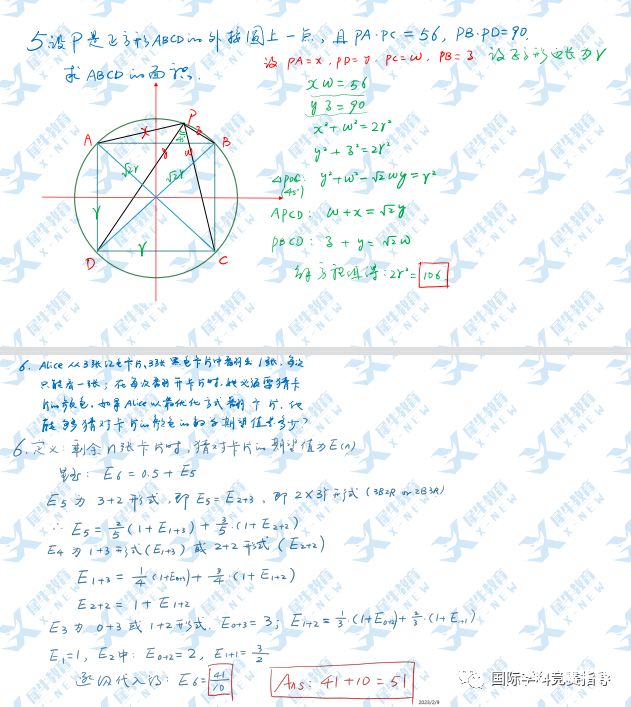 5 设P是正方形ABCD的外接圆上一点, 且PA·PC=56, PB·PD=90.
求ABCD的面积.
设PA=x, PD=y, PC=w, PB=z 设正方形边长为r
xw=56
yz=90
x²+w²=2r²
y²+z²=2r²
△PDC: y²+w²-√2wy=r²
(45°)
APCD: w+x=√2y
PBCD: z+y=√2w
解方程组得: 2r²=106
P
A
B
x
z
y
w
√2r
√2r
r
r
D
C
6. Alice从3张红色卡片、3张黑色卡片中翻开1张, 每次
只能看一张; 在每次翻开卡片时, 她必须要猜卡
片的颜色. 如果Alice以最优化方式翻卡片, 他
能够猜对卡片的颜色的的期望值为多少?
6. 定义: 剩余n张卡片时, 猜对卡片的期望值为E(n)
E₆=0.5+E₅
E₅为 3+2形式, 即E₅=E₂₊₃, 即2×3形式(3B2R or 2B3R)
∴ E₅=3/5(1+E₁₊₃)+3/5·(1+E₂₊₂)
E₄为1+3形式(E₁₊₃)或2+2形式(E₂₊₂)
E₁₊₃=1/4(1+E₀₊₃)+3/4·(1+E₁₊₂)
E₂₊₂=1+E₁₊₂
E₃为 0+3或1+2形式. E₀₊₃=3; E₁₊₂=1/3·(1+E₀₊₂)+2/3·(1+E₁₊₁)
E₁=1, E₂中: E₀₊₂=2, E₁₊₁=3/2
逐次代入得: E₆=41/10
Ans: 41+10=51
2023/2/9
国际学科竞赛指导
犀牛教育
X-NEW